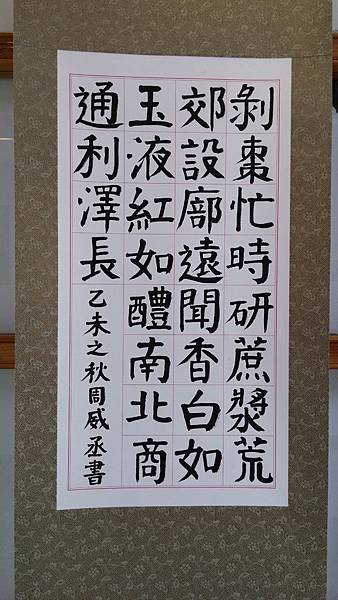 剝棗忙時研蔗漿荒
郊設廍遠聞香白如
玉液紅如醴南北商
通利澤長
乙未之秋周威丞書